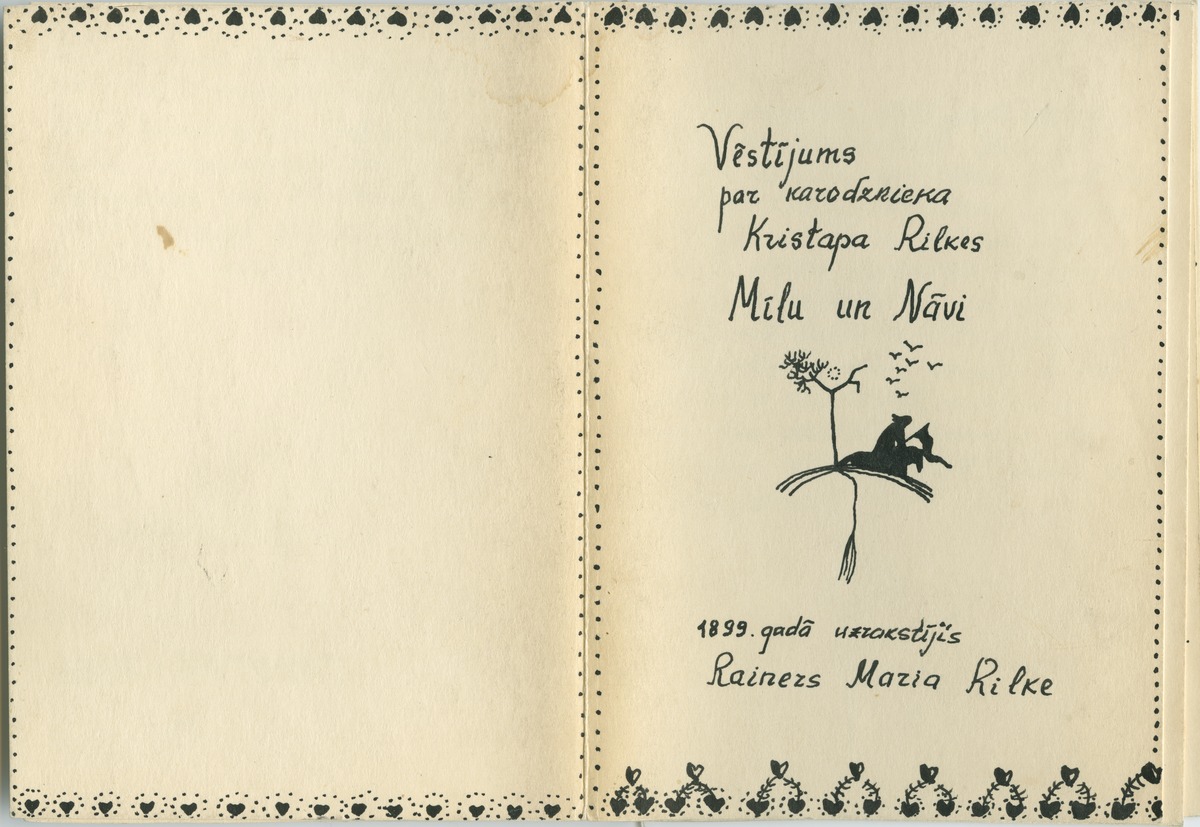 1
Vēstījums
par karodznieka
Kristapa Rilkes
Mīlu un Nāvi
1899. gadā uzrakstījis
Rainers Maria Rilke